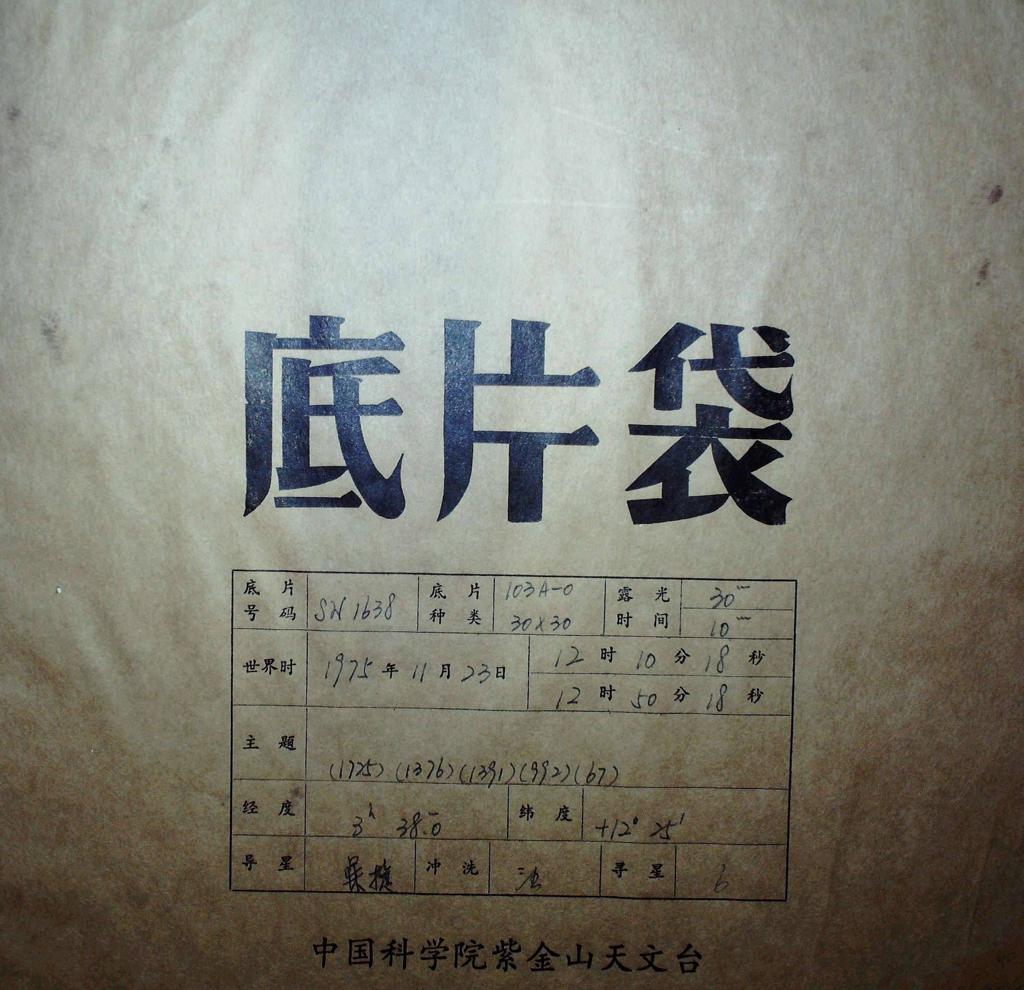 底片袋
底片号码 SN 1638 底片种类 103A-O 30×30 露光时间 30ᵐ 10ᵐ
世界时 1975年11月23日 12时10分18秒
12时50分18秒
主题 (1725) (1376) (1391) (992) (67)
经度 3ʰ 38ᵐ.0 纬度 +12° 25′
导星 冲洗 寻星
中国科学院紫金山天文台